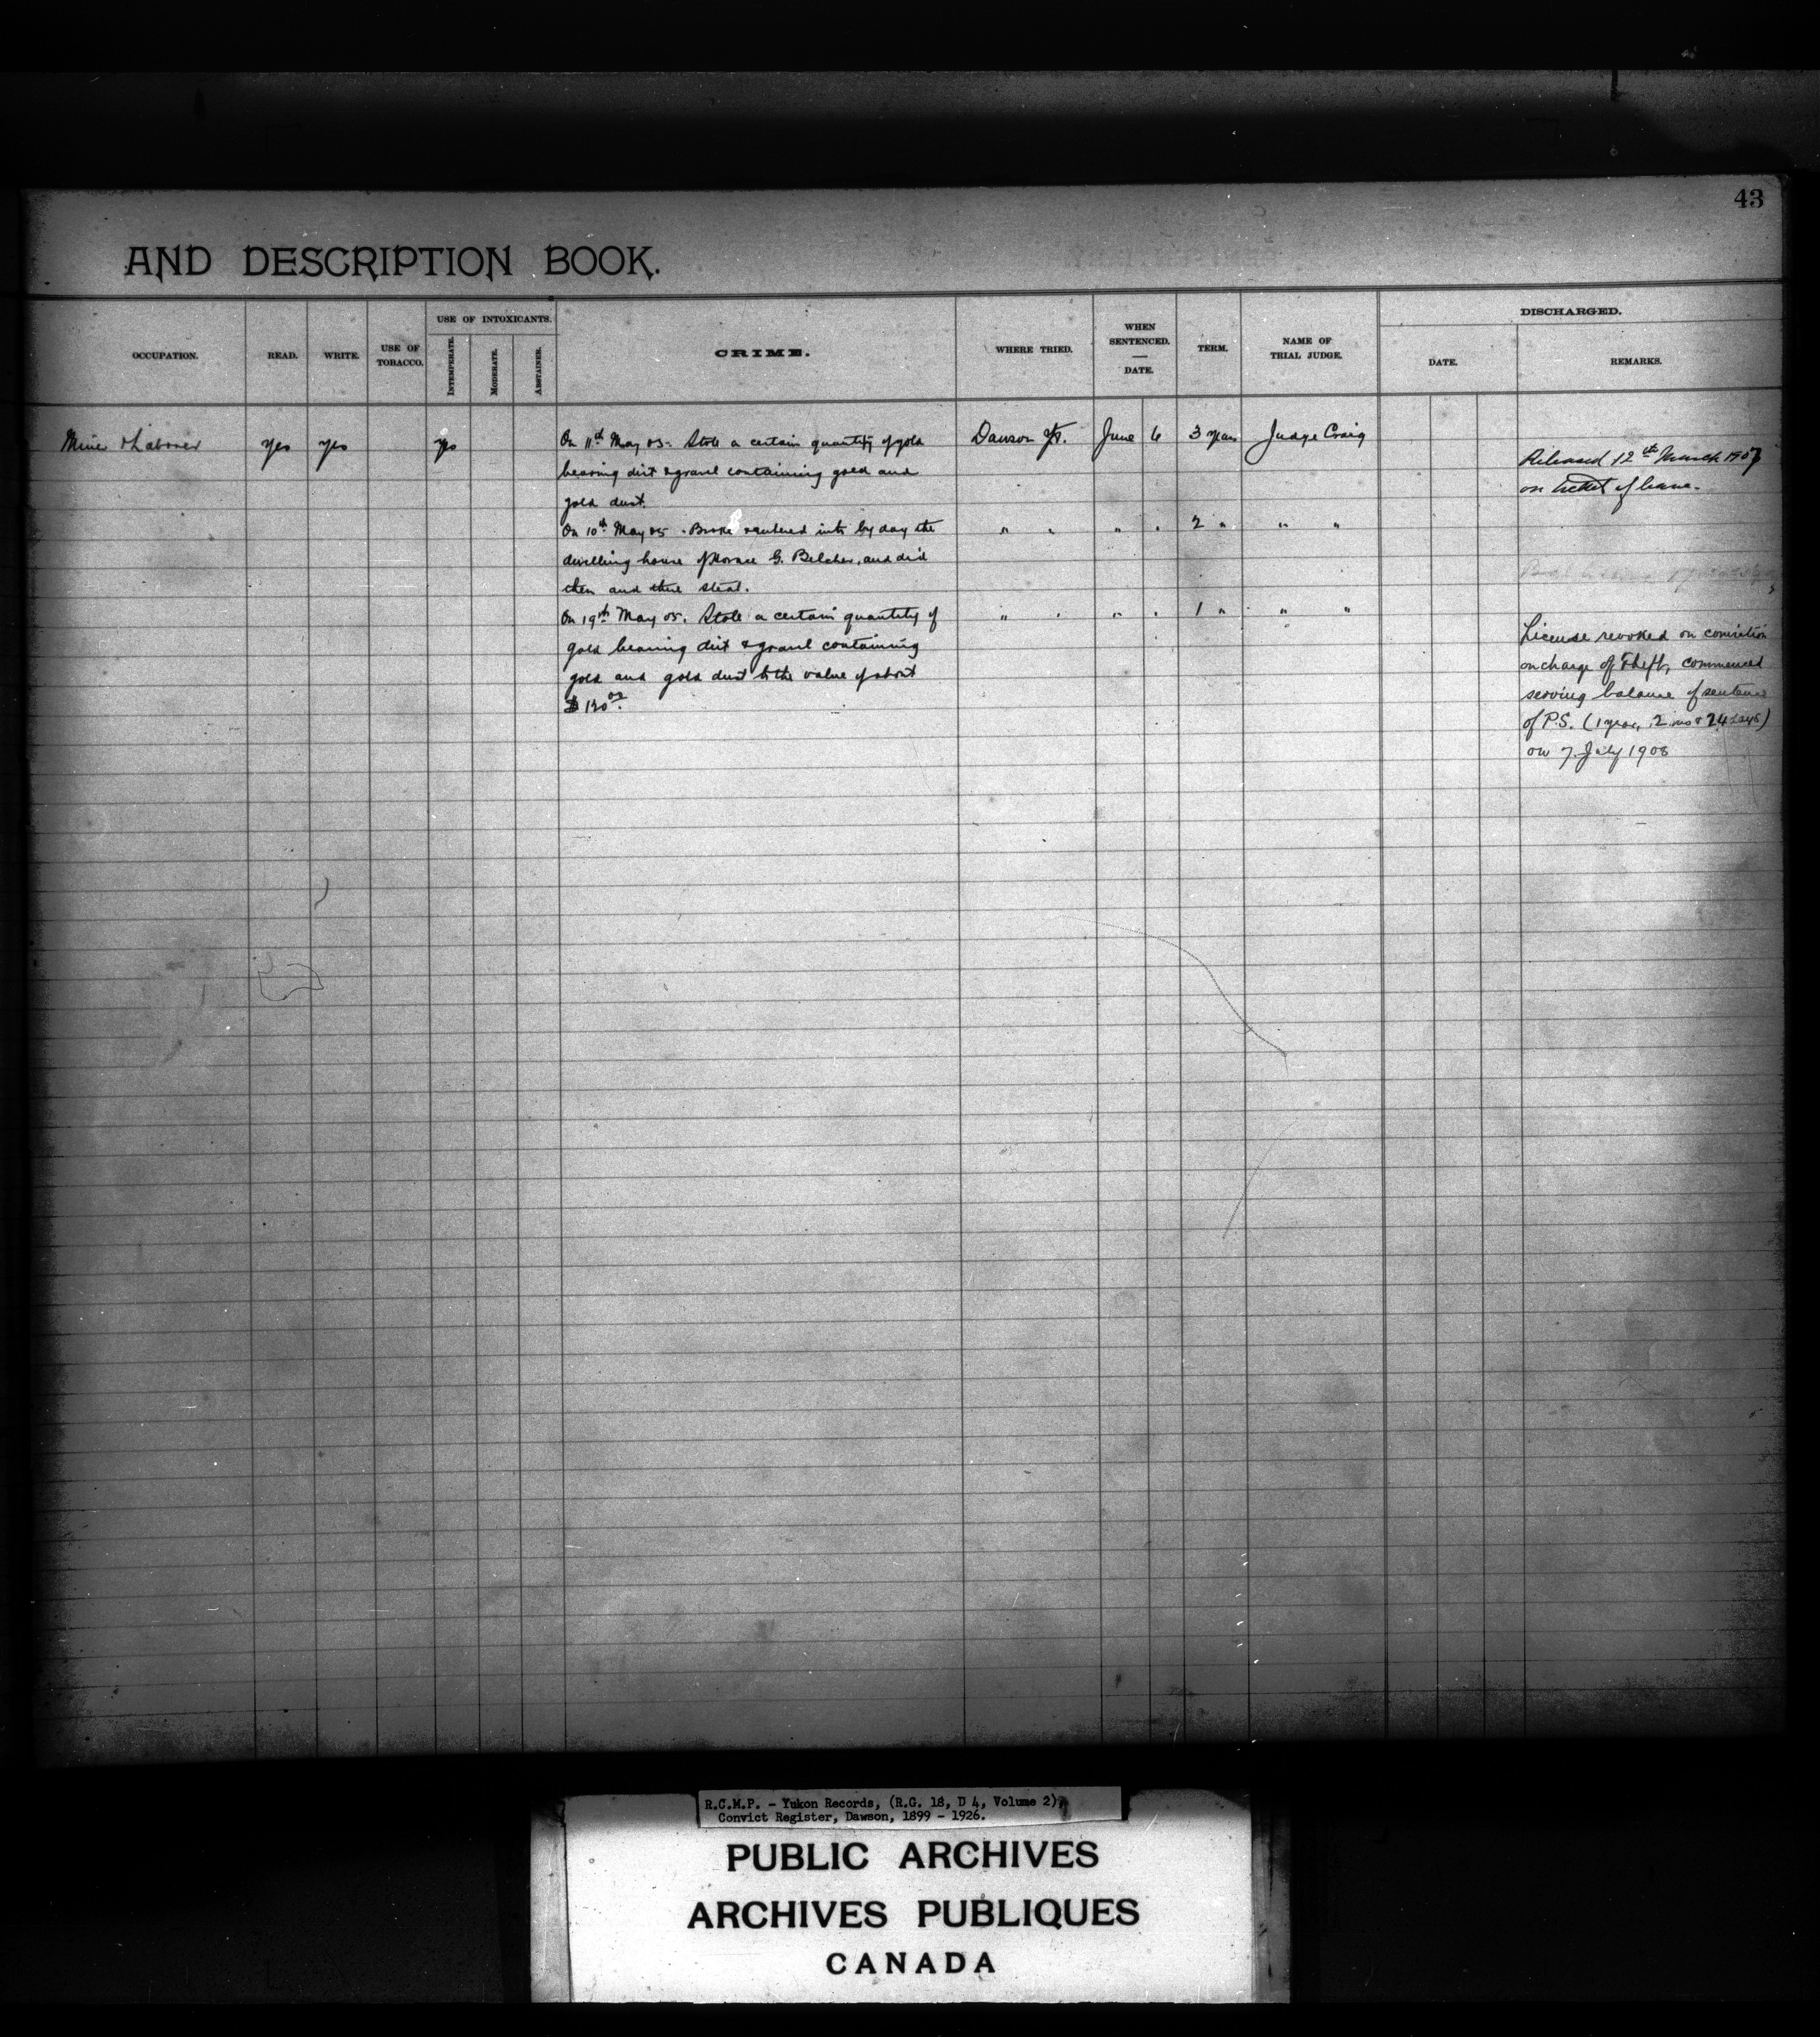 43
AND DESCRIPTION BOOK.
OCCUPATION.
READ.
WRITE.
USE OF
TOBACCO.
USE OF INTOXICANTS.
INTEMPERATE.
MODERATE.
ABSTAINER.
CRIME.
WHERE TRIED.
WHEN
SENTENCED.
DATE.
TERM.
NAME OF
TRIAL JUDGE.
DISCHARGED.
DATE.
REMARKS.
Miner & Laborer yes yes yes On 11th May 05. Stole a certain quantity of gold Dawson Y.T. June 6 3 years Judge Craig
bearing dirt & gravel containing gold and
gold dust.
Released 12th March 1907
on ticket of leave.
On 10th May 05. Broke & entered into by day the " " " " 2 " " "
dwelling house of Horace G. Belcher, and did
then and there steal.
On 19th May 05. Stole a certain quantity of " " " " 1 " " "
gold bearing dirt & gravel containing
gold and gold dust to the value of about
$130.00
License revoked on conviction
on charge of Theft, commenced
serving balance of sentence
of P.S. (1 year, 2 mos & 24 days)
on 7 July 1908
R.C.M.P. - Yukon Records, (R.G. 18, D 4, Volume 2),
Convict Register, Dawson, 1899 - 1926.
PUBLIC ARCHIVES
ARCHIVES PUBLIQUES
CANADA